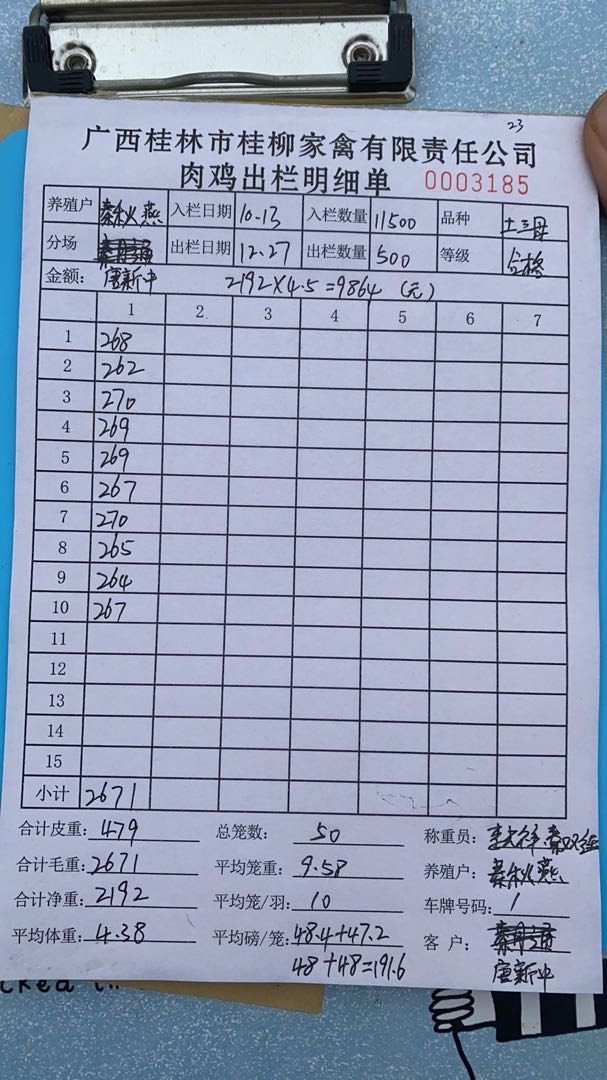 23
广西桂林市桂柳家禽有限责任公司
肉鸡出栏明细单 0003185
养殖户 秦秋燕 入栏日期 10.13 入栏数量 11500 品种 土三母
分场 出栏日期 12.27 出栏数量 500 等级 合格
金额: 唐新中 2192×4.5=9864 (元)
1 2 3 4 5 6 7
1 268
2 262
3 270
4 269
5 269
6 267
7 270
8 265
9 264
10 267
11
12
13
14
15
小计 2671
合计皮重: 479 总笼数: 50 称重员:
合计毛重: 2671 平均笼重: 9.58 养殖户: 秦秋燕
合计净重: 2192 平均笼/羽: 10 车牌号码: 1
平均体重: 4.38 平均磅/笼: 48.4+47.2 客 户:
48+48=191.6 唐新中
cked in